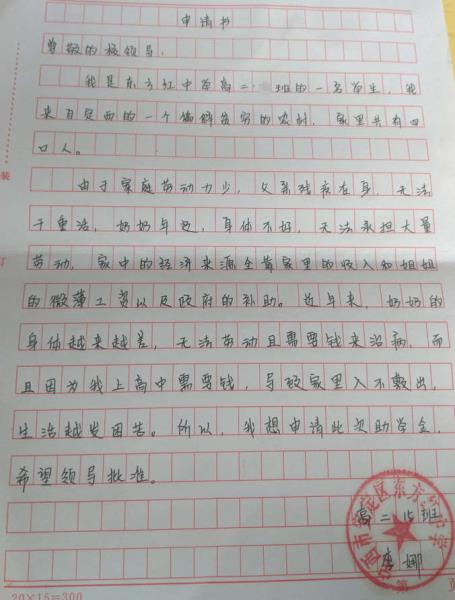 申请书
尊敬的校领导:
我是东方红中学高二 班的一名学生,我
来自定西的一个偏僻贫穷的农村,家里共有四
口人。
由于家庭劳动力少,父亲残疾在身,无法
干重活,奶奶年迈,身体不好,无法承担大量
劳动,家中的经济来源全靠家里的收入和姐姐
的微薄工资以及政府的补助。近年来,奶奶的
身体越来越差,无法劳动且需要钱来治病,而
且因为我上高中需要钱,导致家里入不敷出,
生活越发困苦。所以,我想申请此次助学金,
希望领导批准。
高二15班
唐娜
装
订
20×15=300
页